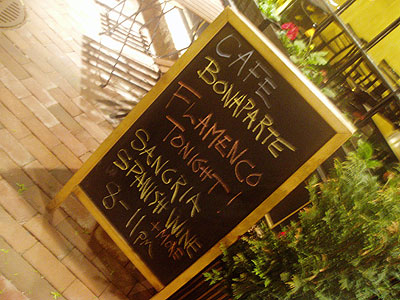 CAFE
BONAPARTE
FLAMENCO
TONIGHT!
SANGRIA
SPANISH WINE
+ MORE
8-11pm